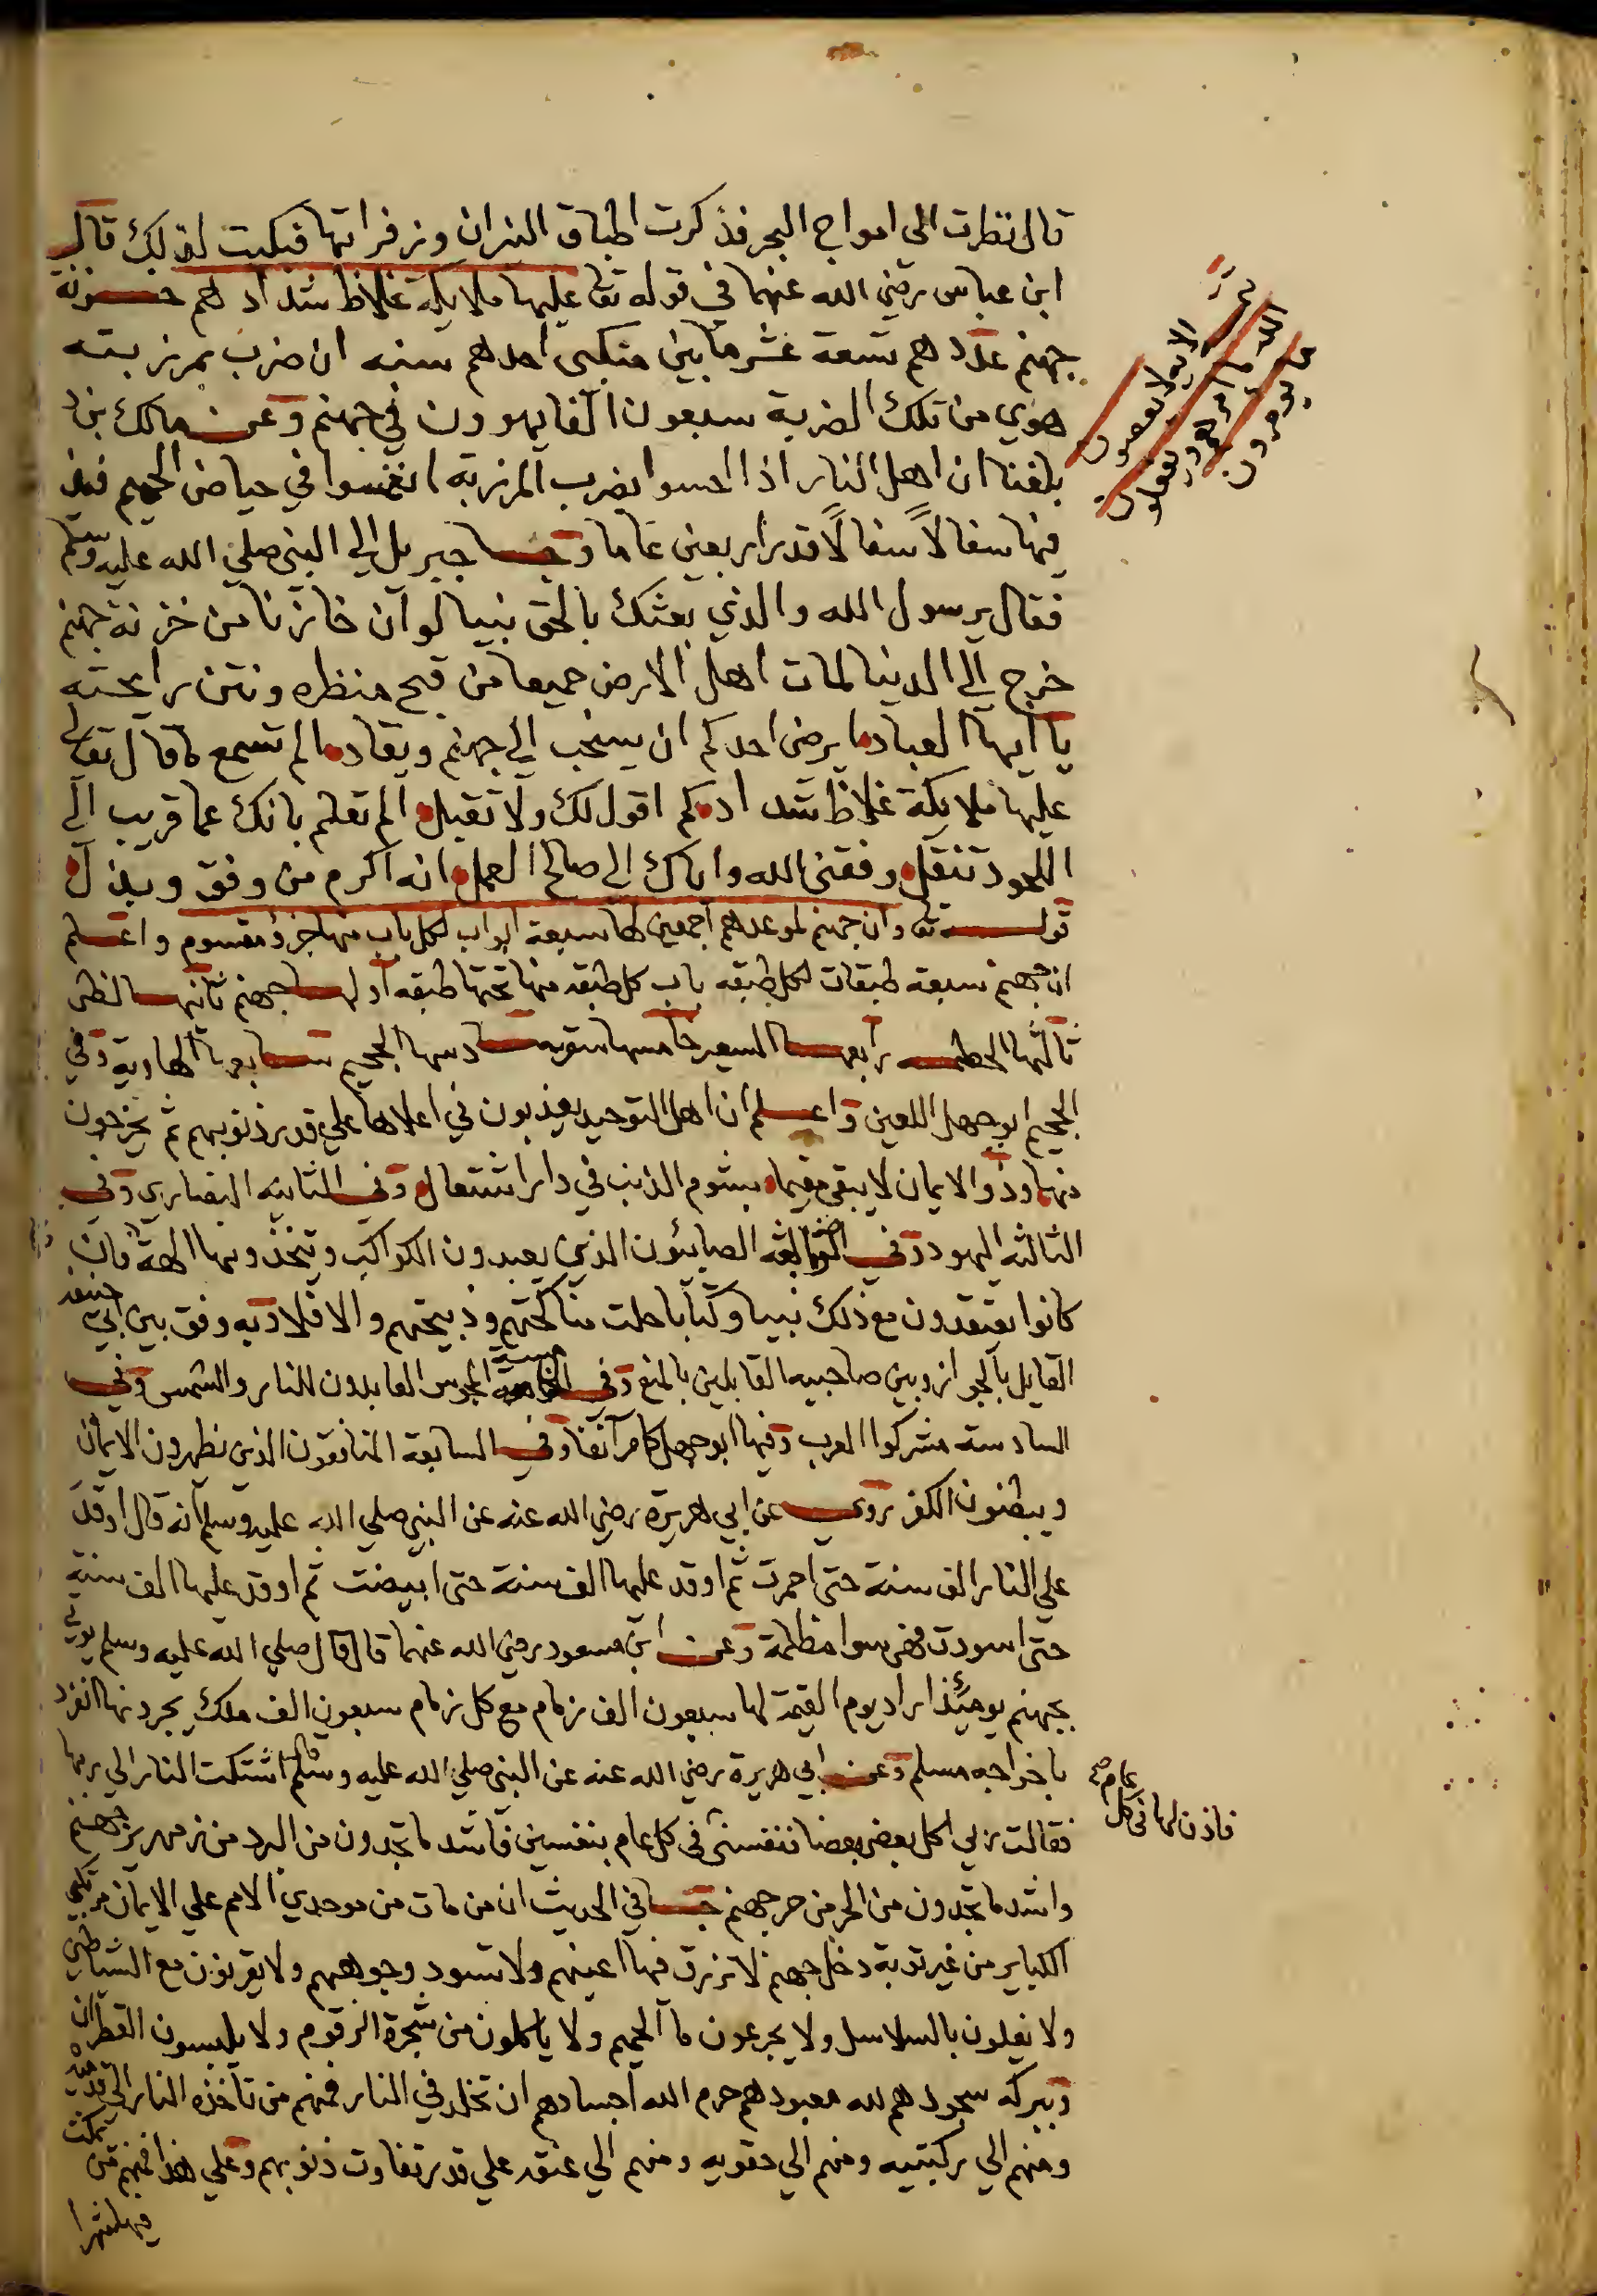 قال نظرت الي امواج البحر فذكرت اطباق النيران وزفراتها فبكيت لذلك قال
ابن عباس رضي الله عنهما في قوله تعا عليها ملايكة غلاظ شداد هم خزنة
جهنم عددهم تسعة عشر ما بين منكبي احدهم سنه ان ضرب بمرزبته
هوي من تلك الضربة سبعون الفا يهوون في جهنم وعن مالك بن د
بلغنا ان اهل النار اذا احسوا بضرب المرزبه انغمسوا في حياض الحميم فيذ
فيها سفالا سفالا قدر اربعين عاما وجا جبريل الي النبي صلي الله عليه وسلم
فقال يرسول الله والذي بعثك بالحق نبيا لو ان خازنا من خزنة جهنم
خرج الي الدنيا لمات اهل الارض جميعا من قبح منظره ونتن رايحته
يا ايها العباد ما يرضي احدكم ان يسحب الي جهنم ويقاد ما لم تسمع ما قال تعالي
عليها ملايكة غلاظ شداد كم اقول لك ولا تقبل الم تعلم بانك عما قريب الي
اللحود تنقل وفقني الله واياك الي صالح العمل انه اكرم من وفق وبذل
قوله تعا وان جهنم لموعدهم اجمعين لها سبعة ابواب لكل باب منهم جزؤ مقسوم واعلم
ان جهنم سبعة طبقات لكل طبقه باب كل طبقه منها تحتها طبقه اولها جهنم ثانيها لظي
ثالثها الحطمه رابعها السعير خامسها سقر سادسها الجحيم سابعها الهاوية وفي
الجحيم ابو جهل اللعين واعلم ان اهل التوحيد يعذبون في اعلاها علي قدر ذنوبهم ثم يخرجون
منها وذو الايمان لا يبقي مقيما بشوم الذنب في دار اشتعال وفي الثانية النصاري وفي
الثالثه اليهود وفي الرابعه الصابئون الذين يعبدون الكواكب ويتخذونها الهة فان
كانوا يعتقدون مع ذلك نبيا وكتابا حلت مناكحتهم وذبيحتهم والا فلا وبه وفق بين ابي حنيفه
القايل بالجواز وبين صاحبيه القايلين بالمنع وفي الخامسة المجوس العابدون للنار والشمس وفي
السادسة مشركوا العرب وفيها ابو جهل كما مر آنفا وفي السابعة المنافقون الذين يظهرون الايمان
ويبطنون الكفر روي عن ابي هريرة رضي الله عنه عن النبي صلي الله عليه وسلم انه قال اوقد
علي النار الف سنة حتي احمرت ثم اوقد عليها الف سنة حتي ابيضت ثم اوقد عليها الف سنة
حتي اسودت فهي سوا مظلمة وعن ابن مسعود رضي الله عنهما قال قال صلي الله عليه وسلم يوتي
بجهنم يومئذ اراد يوم القيمة لها سبعون الف زمام مع كل زمام سبعون الف ملك يجرونها انفرد
باخراجه مسلم وعن ابي هريرة رضي الله عنه عن النبي صلي الله عليه وسلم قال اشتكت النار الي ربها
فقالت ربي اكل بعضي بعضا فنفسني في كل عام بنفسين فاشد ما تجدون من البرد من زمهرير جهنم
واشد ما تجدون من الحر من حر جهنم جا في الحديث ان من مات من موحدي الامم علي الايمان مرتكبي
الكباير من غير توبة دخل جهنم لا تزرق فيها اعينهم ولا تسود وجوههم ولا يقرنون مع الشياطين
ولا يغلون بالسلاسل ولا يجرعون ما الحميم ولا ياكلون من شجرة الزقوم ولا يلبسون القطران
وببركه سجودهم لله معبودهم حرم الله اجسادهم ان تخلد في النار فمنهم من تاخذه النار الي قدميه
ومنهم الي ركبتيه ومنهم الي حقويه ومنهم الي عنقه علي قدر تفاوت ذنوبهم وعلي هذا فمنهم من يمكث
فيها شهرا
الايه لا يعصون
الله ما امرهم ويفعلون
ما يومرون
فاذن لها في كل
عام صح